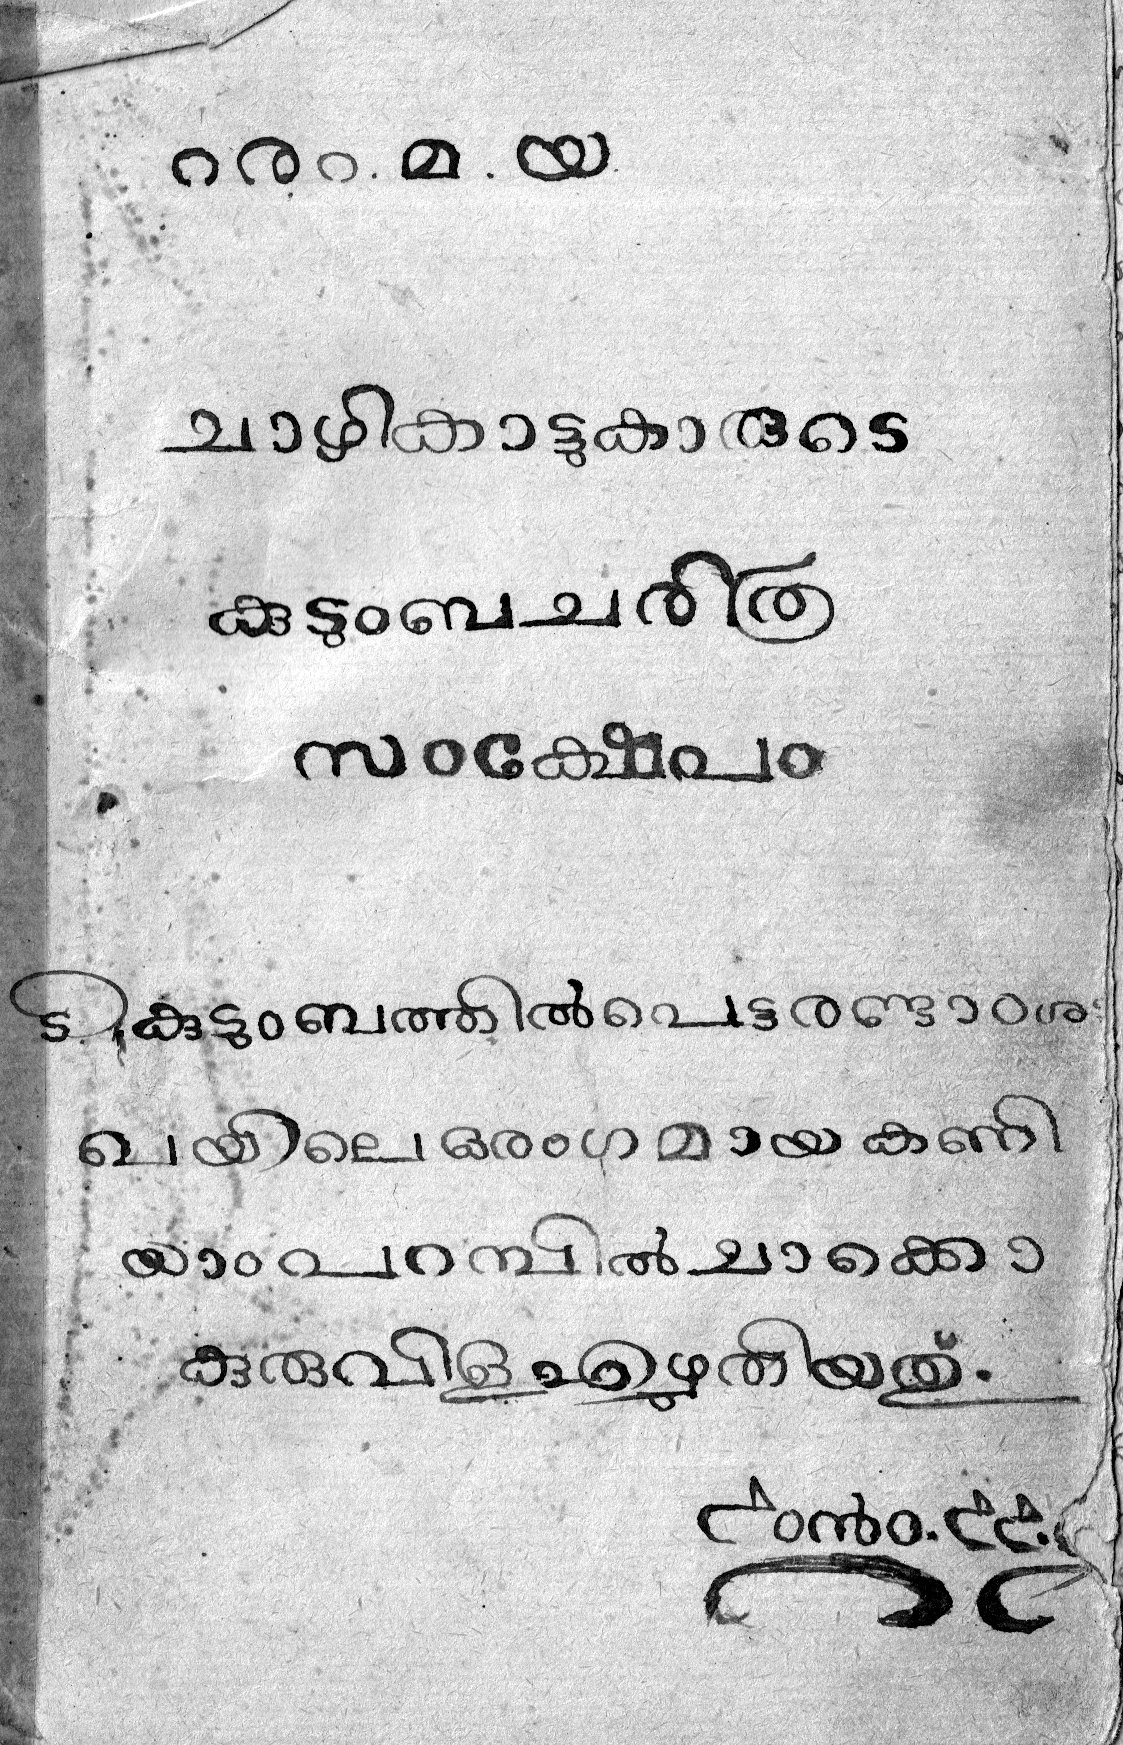 റരറ. മ. യ.
ചാഴികാട്ടുകാരുടെ
കുടുംബചരിത്ര
സംക്ഷേപം
ടി കുടുംബത്തിൽപെട്ട രണ്ടാംശാ
ഖയിലെ ഒരംഗമായ കണി
യാംപറമ്പിൽ ചാക്കൊ
കുരുവിള എഴുതിയത്.